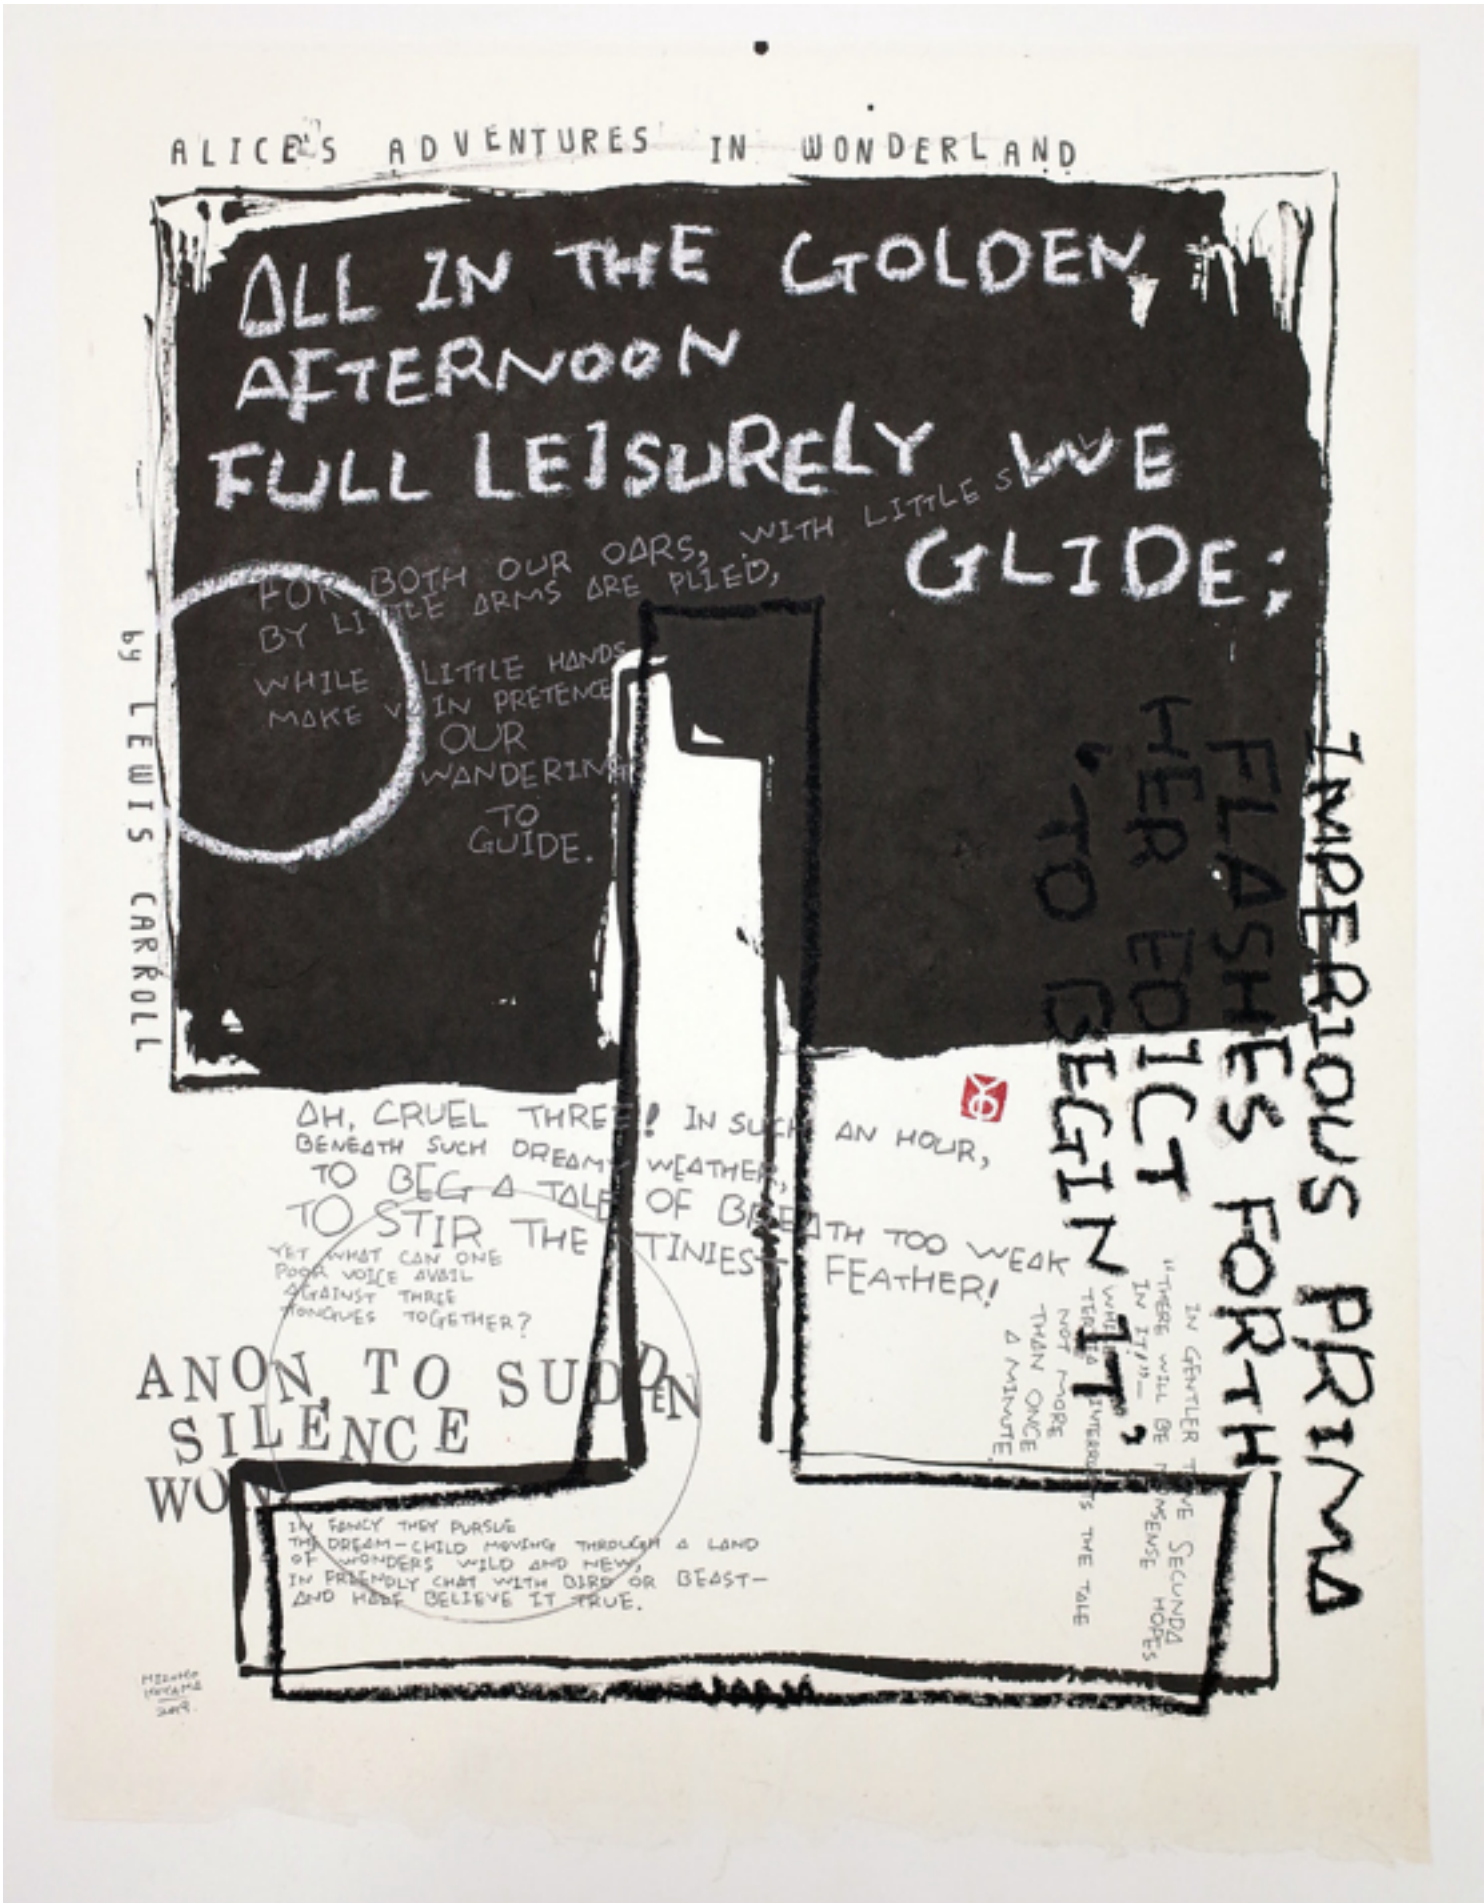 ALICE'S ADVENTURES IN WONDERLAND
by LEWIS CARROLL
ALL IN THE GOLDEN
AFTERNOON
FULL LEISURELY WE
GLIDE;
FOR BOTH OUR OARS, WITH LITTLE
BY LITTLE ARMS ARE PLIED,
WHILE LITTLE HANDS
MAKE VAIN PRETENCE
OUR
WANDERING
TO
GUIDE.
IMPERIOUS PRIMA
FLASHES FORTH
HER EDICT
"TO BEGIN IT",
AH, CRUEL THREE! IN SUCH AN HOUR,
BENEATH SUCH DREAMY WEATHER,
TO BEG A TALE OF BREATH TOO WEAK
TO STIR THE TINIEST FEATHER!
YET WHAT CAN ONE
POOR VOICE AVAIL
AGAINST THREE
TONGUES TOGETHER?
IN GENTLER TONE SECUNDA HOPES
"THERE WILL BE NONSENSE
IN IT!"—
WHILE
TERTIA INTERRUPTS THE TALE
NOT MORE
THAN ONCE
A MINUTE.
ANON, TO SUDDEN
SILENCE
WON
IN FANCY THEY PURSUE
THE DREAM-CHILD MOVING THROUGH A LAND
OF WONDERS WILD AND NEW,
IN FRIENDLY CHAT WITH BIRD OR BEAST—
AND HALF BELIEVE IT TRUE.
2019.